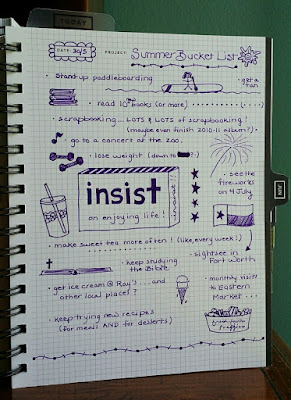 TODAY
DATE: 30/5 PROJECT: Summer Bucket List
• Stand up paddleboarding
• get a tan
• read 10 books (or more)
• scrapbooking... LOTS & LOTS of scrapbooking!
(maybe even finish 2010-11 album?)
• go to a concert at the zoo.
• lose weight (down to
insist
on enjoying life!
• see the
fireworks
on 4 July
• make sweet tea more often! (like, every week!)
• keep studying
the Bible
• sightsee in
Fort Worth
• get ice cream @ Ray's.... and
other local places?
• monthly visits
to Eastern
Market
• keep trying new recipes
(for meals AND for desserts)